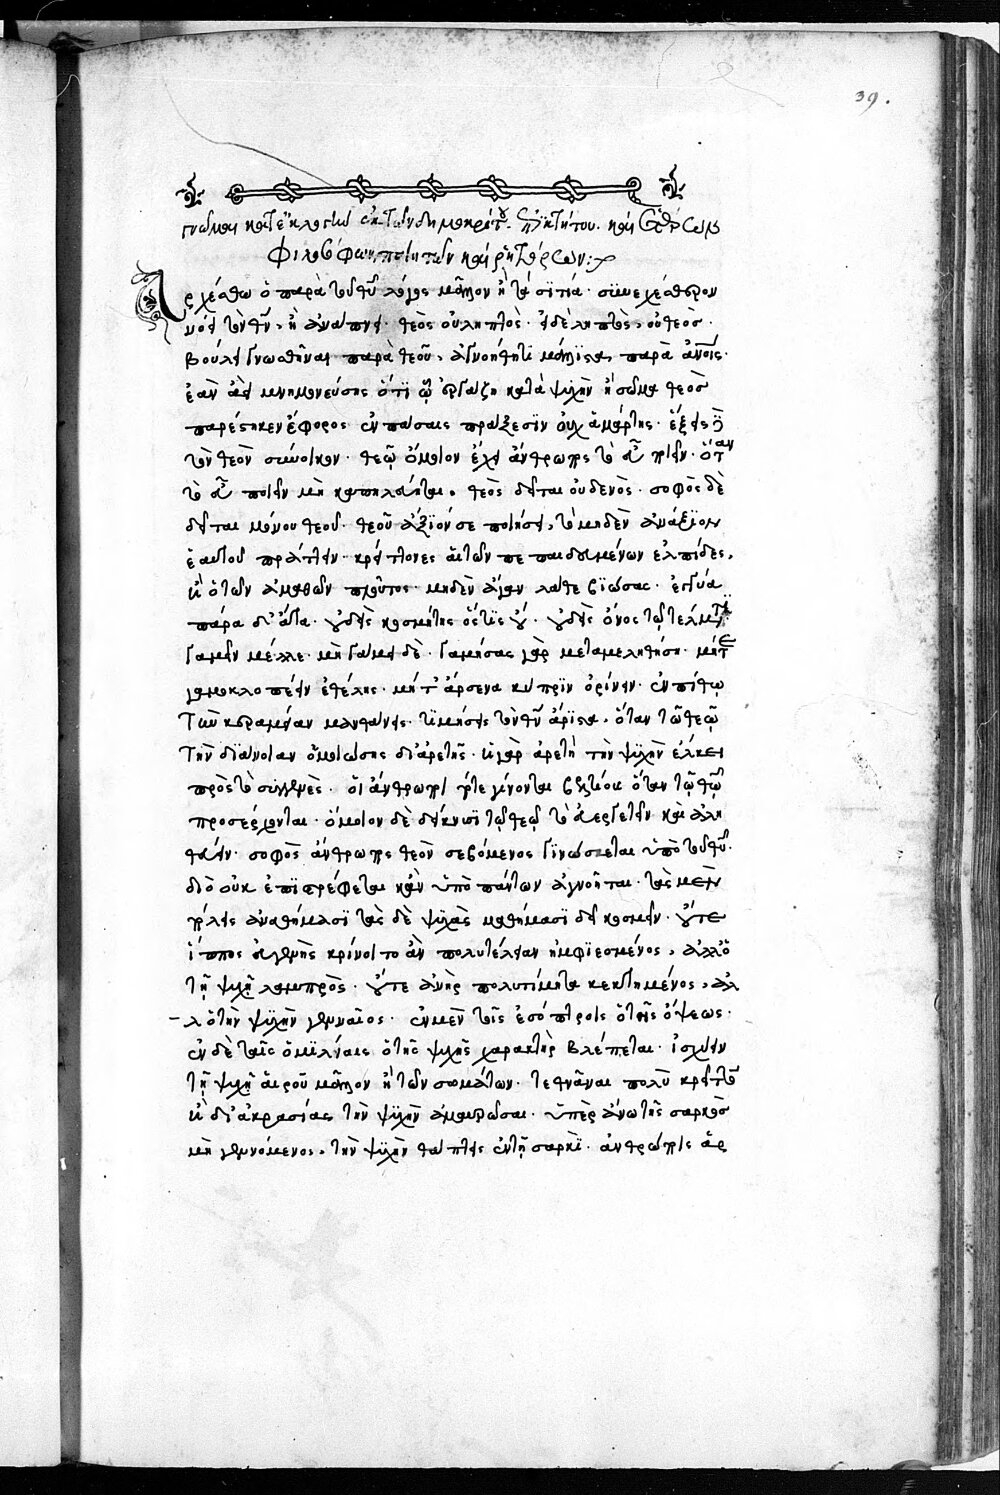 39.
γνῶμαι κατ' ἐκλογὴν ἐκ τῶν δημοκρίτου. ἐπικτήτου. καὶ ἑτέρων
φιλοσόφων, ποιητῶν καὶ ῥητόρων:
Ἀρχέσθω ὁ παρὰ τοῦ θεοῦ λόγος μᾶλλον ἢ τὰ σιτία. συνεχέστερον
νόει τὸν θεὸν, ἢ ἀνάπνει. θεὸς οὐ ληπτὸς. εἰ δὲ ληπτὸς, οὐ θεὸς.
βούλει γνωσθῆναι παρὰ θεοῦ, ἀγνοήθητι μάλιστα παρὰ ἀνθρώποις.
ἐὰν ἀεὶ μνημονεύσῃς ὅτι ᾧ ἐργάζῃ κατὰ ψυχὴν ἢ σῶμα θεὸς
παρέστηκεν ἔφορος. ἐν πάσαις πράξεσιν οὐχ ἁμάρτῃς. ἕξεις δὲ
τὸν θεὸν σύνοικον. θεῷ ὅμοιον ἔχει ἄνθρωπος τὸ εὖ ποιεῖν. ὅταν
τὸ εὖ ποιεῖν μὴ καπηλεύηται. θεὸς δεῖται οὐδενὸς. σοφὸς δὲ
δεῖται μόνου θεοῦ. θεοῦ ἄξιόν σε ποιήσει, τὸ μηδὲν ἀνάξιον
ἑαυτοῦ πράττειν. κρείττονες αἱ τῶν πεπαιδευμένων ἐλπίδες,
ἢ ὁ τῶν ἀμαθῶν πλοῦτος. μηδὲν ἄγαν λάθε βιώσας. ἐγγύα
πάρα δ' ἄτα. οὐδεὶς κομήτης ὅστις οὐ.
γαμεῖν μέλλε. μὴ γάμει δὲ. γαμήσας γὰρ μεταμεληθήσῃ. μήτε
γαμοκλοπέειν ἐθέλῃς. μήτ' ἄρσενα κύπριν ὀρίνειν.
τιμήσεις τὸν θεὸν ἄριστα, ὅταν τῷ θεῷ
τὴν διάνοιαν ὁμοιώσῃς δι' ἀρετῆς. ἡ γὰρ ἀρετὴ τὴν ψυχὴν ἕλκει
πρὸς τὸ συγγενὲς. οἱ ἄνθρωποι τότε γίνονται βελτίους ὅταν τῷ θεῷ
προσέρχονται. ὅμοιον δὲ δείκνυσι τῷ θεῷ τὸ εὐεργετεῖν καὶ ἀλη
θεύειν. σοφὸς ἄνθρωπος θεὸν σεβόμενος γινώσκεται ὑπὸ τοῦ θεοῦ.
διὸ οὐκ ἐπιστρέφεται κἂν ὑπὸ πάντων ἀγνοῆται. τὰς μὲν
πόλεις ἀναθήμασι τὰς δὲ ψυχὰς μαθήμασι δεῖ κοσμεῖν. οὔτε
ἵππος εὐγενὴς κρίνοιτο ἂν πολυτέλειαν ἠμφιεσμένος, ἀλλ' ὁ
τῇ ψυχῇ λαμπρὸς. οὔτε ἀνὴρ πολυτίμητα κεκτημένος, ἀλ
λ' ὁ τὴν ψυχὴν γενναῖος. ἐν μὲν τοῖς ἐσόπτροις ὁ τῆς ὄψεως.
ἐν δὲ ταῖς ὁμιλίαις ὁ τῆς ψυχῆς χαρακτὴρ βλέπεται. ἰσχύειν
τῇ ψυχῇ αἱροῦ μᾶλλον ἢ τῷ σώματι. τεθνάναι πολὺ κρεῖττον
ἢ δι' ἀκρασίας τὴν ψυχὴν ἀμαυρῶσαι. ὑπὲρ ἄνω τῆς σαρκὸς
μὴ γενόμενος, τὴν ψυχὴν θάπτεις ἐν τῇ σαρκὶ. ἀνθρώποις ἁρ